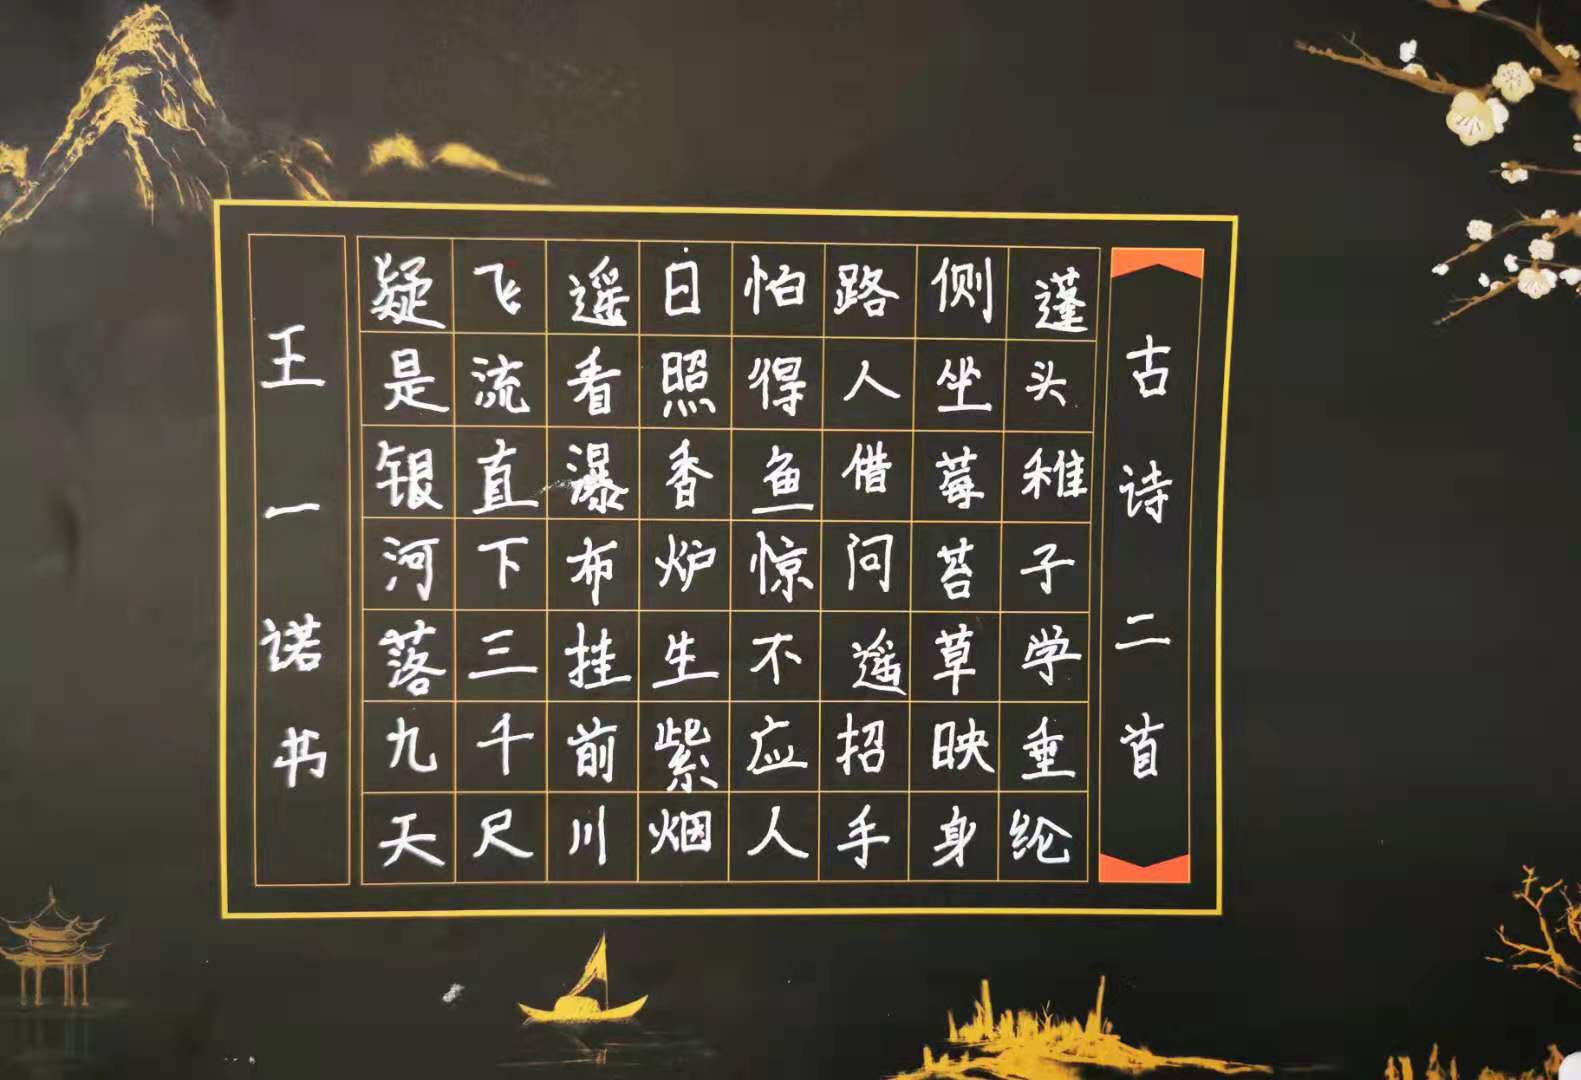 古诗二首
蓬头稚子学垂纶
侧坐莓苔草映身
路人借问遥招手
怕得鱼惊不应人
日照香炉生紫烟
遥看瀑布挂前川
飞流直下三千尺
疑是银河落九天
王一诺书